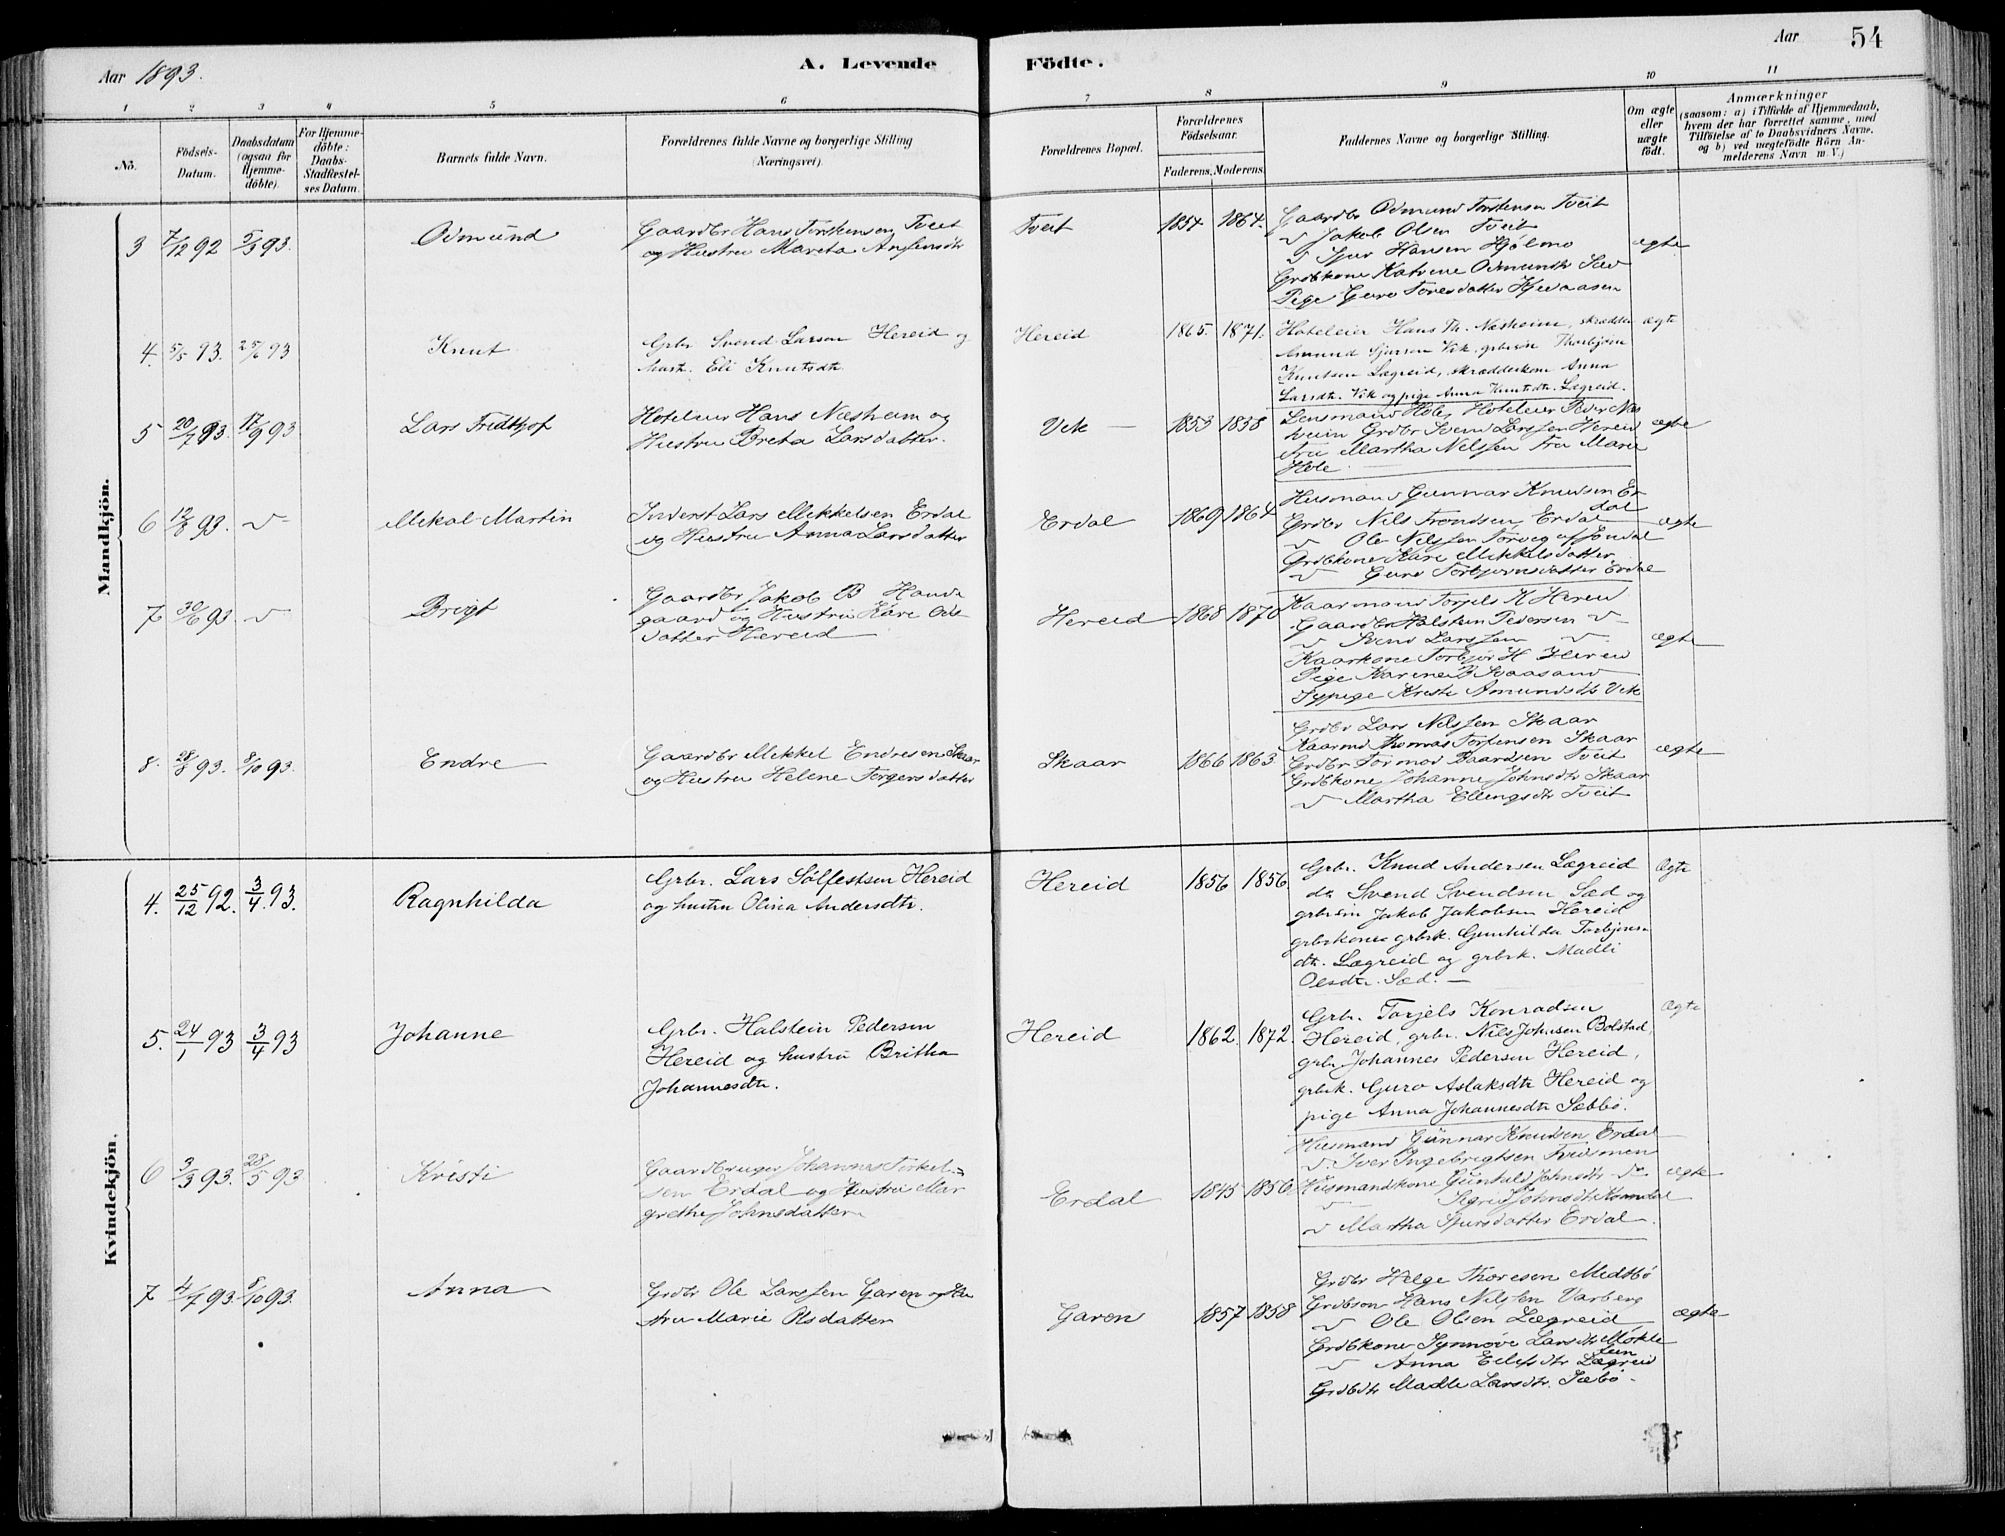 Aar 1893.
A. Levende Födte.
Aar 54
1 2 3 4 5 6 7 8 9 10 11
No.
Fødsels-Datum.
Daabsdatum (ogsaa for Hjemme-döbte).
For Hjemme-döbte: Daabs-Stadfæstel-ses Datum.
Barnets fulde Navn.
Forældrenes fulde Navne og borgerlige Stilling
(Næringsvei).
Forældrenes Bopæl.
Forældrenes Födselsaar.
Faderens. Moderens.
Faddernes Navne og borgerlige Stilling.
Om ægte eller uægte födt.
Anmærkninger
(saasom: a) i Tilfælde af Hjemmedaab,
hvem der har forrettet samme, med
Tilföielse af to Daabsvidners Navne,
og b) ved uægtefödte Börn An-
melderens Navn m. V.)
Mandkjön.
3 7/12 92 5/3 93. Odmund
Gaardbr Hans Torstensen Tveit
og Hustru Mareta
Tveit 1854 1864.
Gaardbr Odmund Torstensen Tveit
Jakob Olsen Tveit
Sjur Hansen Hjølmo
Grdbkone Katrine Odmundsdtr Sæd
Pige Guro Toresdatter
ægte
4. 5/5 93. 25/6 93 Knut
Grbr Svend Larsen Hereid og
hust. Eli Knutsdtr.
Hereid 1865. 1871.
Hoteleier Hans Th. Næsheim, skrædder
Amund Sjursen Vik, grbrsøn Thorbjørn
Knutsen Lægreid, skrædderkone Anna
Larsdtr. Vik og pige Anna Knutsdtr. Lægreid.
ægte
5 20/7 93. 17/9 93 Lars Fridthjof
Hoteleier Hans Næsheim og
Hustru Breta Larsdatter.
Vik 1853 1858
Lensmand Hole, Hoteleier Peder Næs
heim Grdbr Svend Larssen Hereid
Fru Martha Nelssen Fru Marie
Hole
ægte
6 12/8 93. Mikal Martin
Inderst Lars Mikkelsen Erdal
og Hustru Anna Larsdatter
Erdal 1869 1864
Husmand Gunnar Knudsen Er
dal
Grdbr Nils Trondsen Erdal
Ole Nilssen
Grdbkone Kari Mikkelsdatter
Guro Torbjørnsdatter Erdal
ægte
7 30/6 93. Brigt
Gaardbr Jakob B Hauda
gaard og Hustru Kare Ols
datter Hereid
Hereid 1868 1870
Kaarmand Torjels K Hereid
Gaardbr Halsten Pedersen
Svend Larssen
Kaarkone Torbjør H Hereid
Pige Karine B
Sypige Kristi Amundsdtr Vik
ægte
8. 28/8 93. 8/10 93. Endre
Gaardbr Mikkel Endresen Skaar
og Hustru Helene Torgersdatter
Skaar 1866 1863
Grdbr Lars Nilssen Skaar
Kaarmd Thomas Torfinsen Skaar
Grdbr Tormod Baardsen Tveit
Grdbkone Johanne Johnsdtr Skaar
Martha Ellingsdtr Tveit
ægte
Kvindekjön.
4. 25/12 92. 3/4 93. Ragnhilda
Grbr. Lars Sölfestsen Hereid
og hustru Olina Andersdtr.
Hereid 1856 1856.
Grbr. Knud Andersen Lægreid
do. Svend Svendsen Sæd og
grbrsøn Jakob Jakobsen Hereid
grbrkone grbrk. Gunhilda Torbjørns-
dtr. Lægreid og grbrk. Madli
Olsdtr. Sæd.
Ægte
5. 24/1 93 3/4 93 Johanne
Grbr. Halstein Pedersen
Hereid og hustru Britha
Johannesdtr.
Hereid 1862. 1872.
Grbr. Torjels Konradsen
Hereid, grbr. Nils Johnsen Bolstad,
grbr. Johannes Pedersen Hereid,
grbrk. Guro Aslaksdtr Hereid og
pige Anna Johannesdtr Sæbbö.
Ægte
6 3/3 93. 28/5 93 Kristi
Gaardbruger Johannes Torkel-
sen Erdal og Hustru Mar
grethe Johnsdatter
Erdal 1845 1856
Husmand Gunnar Knudsen Erdal
Iver Ingebrigtsen
Husmandkone Gunhild Johnsdtr
Sigrid Johnsdtr
Martha Sjursdatter Erdal
ægte
7 4/7 93. 8/10 93. Anna
Grdbr Ole Larssen Garen og Hu
stru Marie Olsdatter
Garen 1857 1858
Grdbr Helge Thoresen Medtbö
Grdbson Hans Nilssen Varberg
Ole Olsen Lægreid
Grdbkone Synnöve Larsdtr Mökle
Anna Eilefsdtr Lægreid
Grdbdtr Madle Larsdtr. Sæbö
ægte